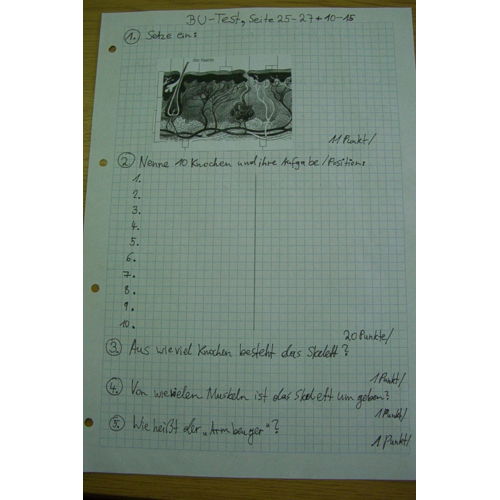 BU-Test, Seite 25-27 + 10-15
1. Setze ein:
Die Haut
11 Punkt/
2. Nenne 10 Knochen und ihre Aufgabe/Position:
1.
2.
3.
4.
5.
6.
7.
8.
9.
10.
20 Punkte/
3. Aus wieviel Knochen besteht das Skelett?
1 Punkt/
4. Von wievielen Muskeln ist das Skelett umgeben?
1 Punkt/
5. Wie heißt der „Armbeuger"?
1 Punkt/